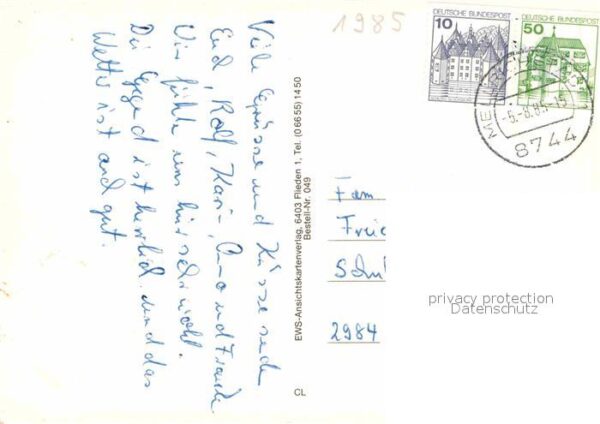 1985
DEUTSCHE BUNDESPOST
10
DEUTSCHE BUNDESPOST
50
-5.-8.85-15
8744
Viele Grüsse und Küsse senden
Euch, Rolf, Karin, und
Wir fühlen uns hier sehr wohl.
Die Gegend ist herrlich und das
Wetter ist auch gut.
EWS-Ansichtskartenverlag, 6403 Flieden 1, Tel. (06655) 1450
Bestell-Nr. 049
CL
Fam
2984
privacy protection
Datenschutz